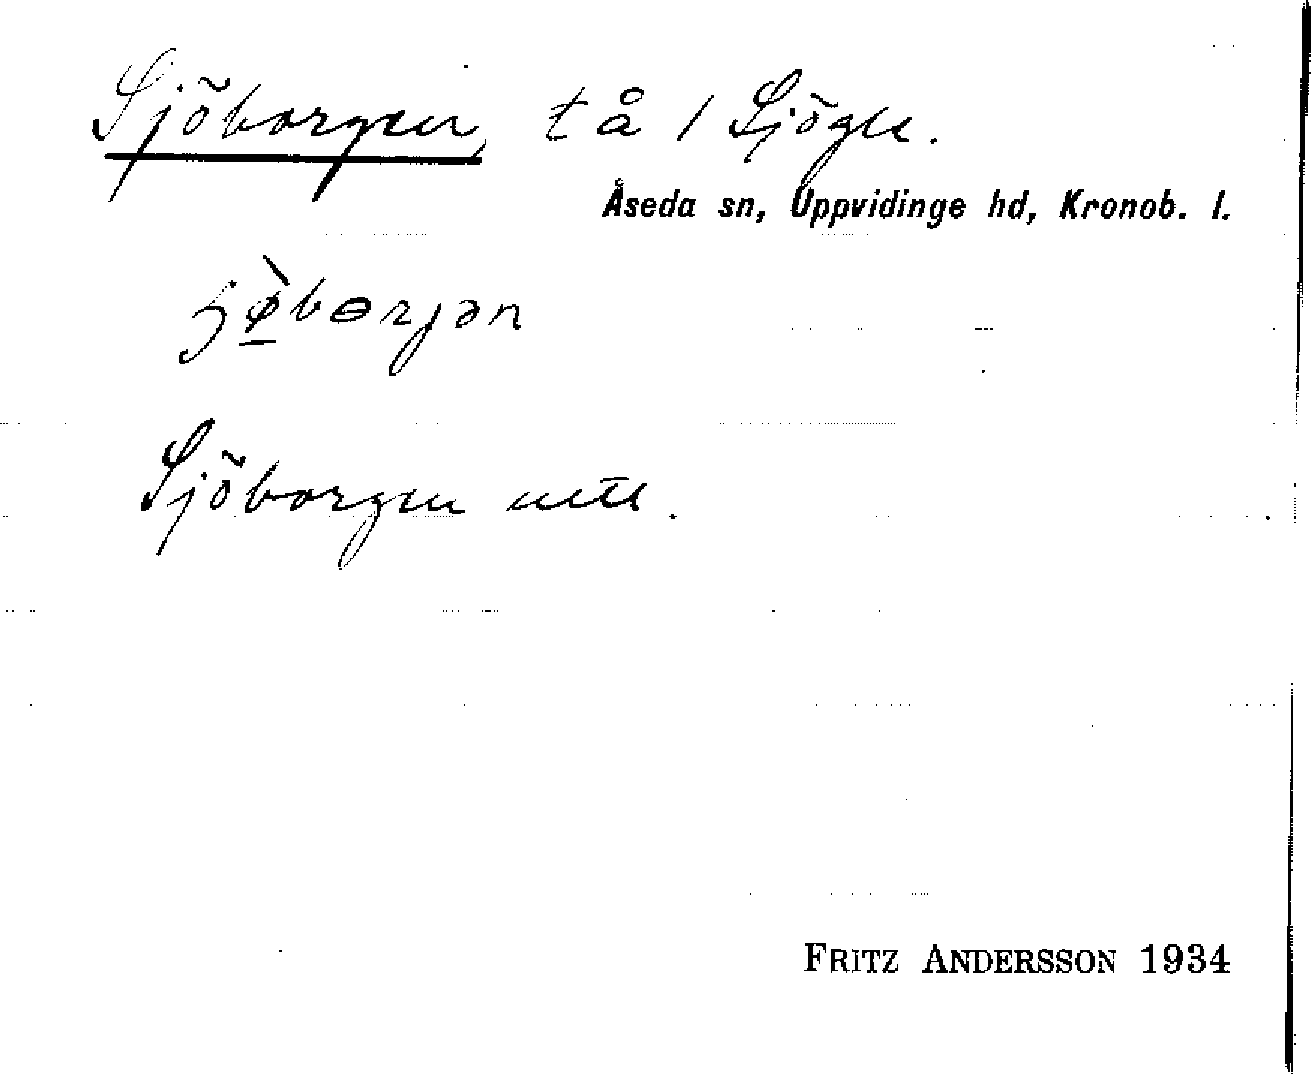 Sjöborgen tå / Sjögle.
Åseda sn, Uppvidinge hd, Kronob. l.
jø̀bɵrjən
Sjöborgen uttl.
FRITZ ANDERSSON 1934